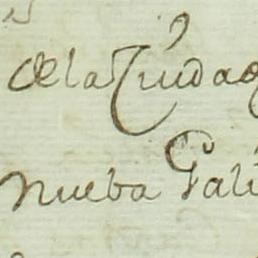 de la Ciudad
nueba Gali